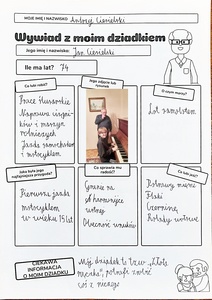 MOJE IMIĘ I NAZWISKO Andrzej Ciesielski
Wywiad z moim dziadkiem
Jego imię i nazwisko: Jan Ciesielski
Ile ma lat? 74
Co lubi robić?
Prace ślusarskie
Naprawa ciągni-
ków i maszyn
rolniczych
Jazda samochodem
i motocyklem
Jego zdjęcie lub
rysunek
O czym marzy?
Lot samolotem
Jaka była jego
najfajniejsza przygoda?
Pierwsza jazda
motocyklem
w wieku 15 lat
Co sprawia mu
radość?
Granie na
harmonijce
ustnej
Obecność wnuków
Co lubi jeść?
Potrawy mięsne
Flaki
Czerninę
Rosoły
CIEKAWA
INFORMACJA
O MOIM DZIADKU
Mój dziadek to tzw. „złota
rączka”, potrafi zrobić
coś z niczego